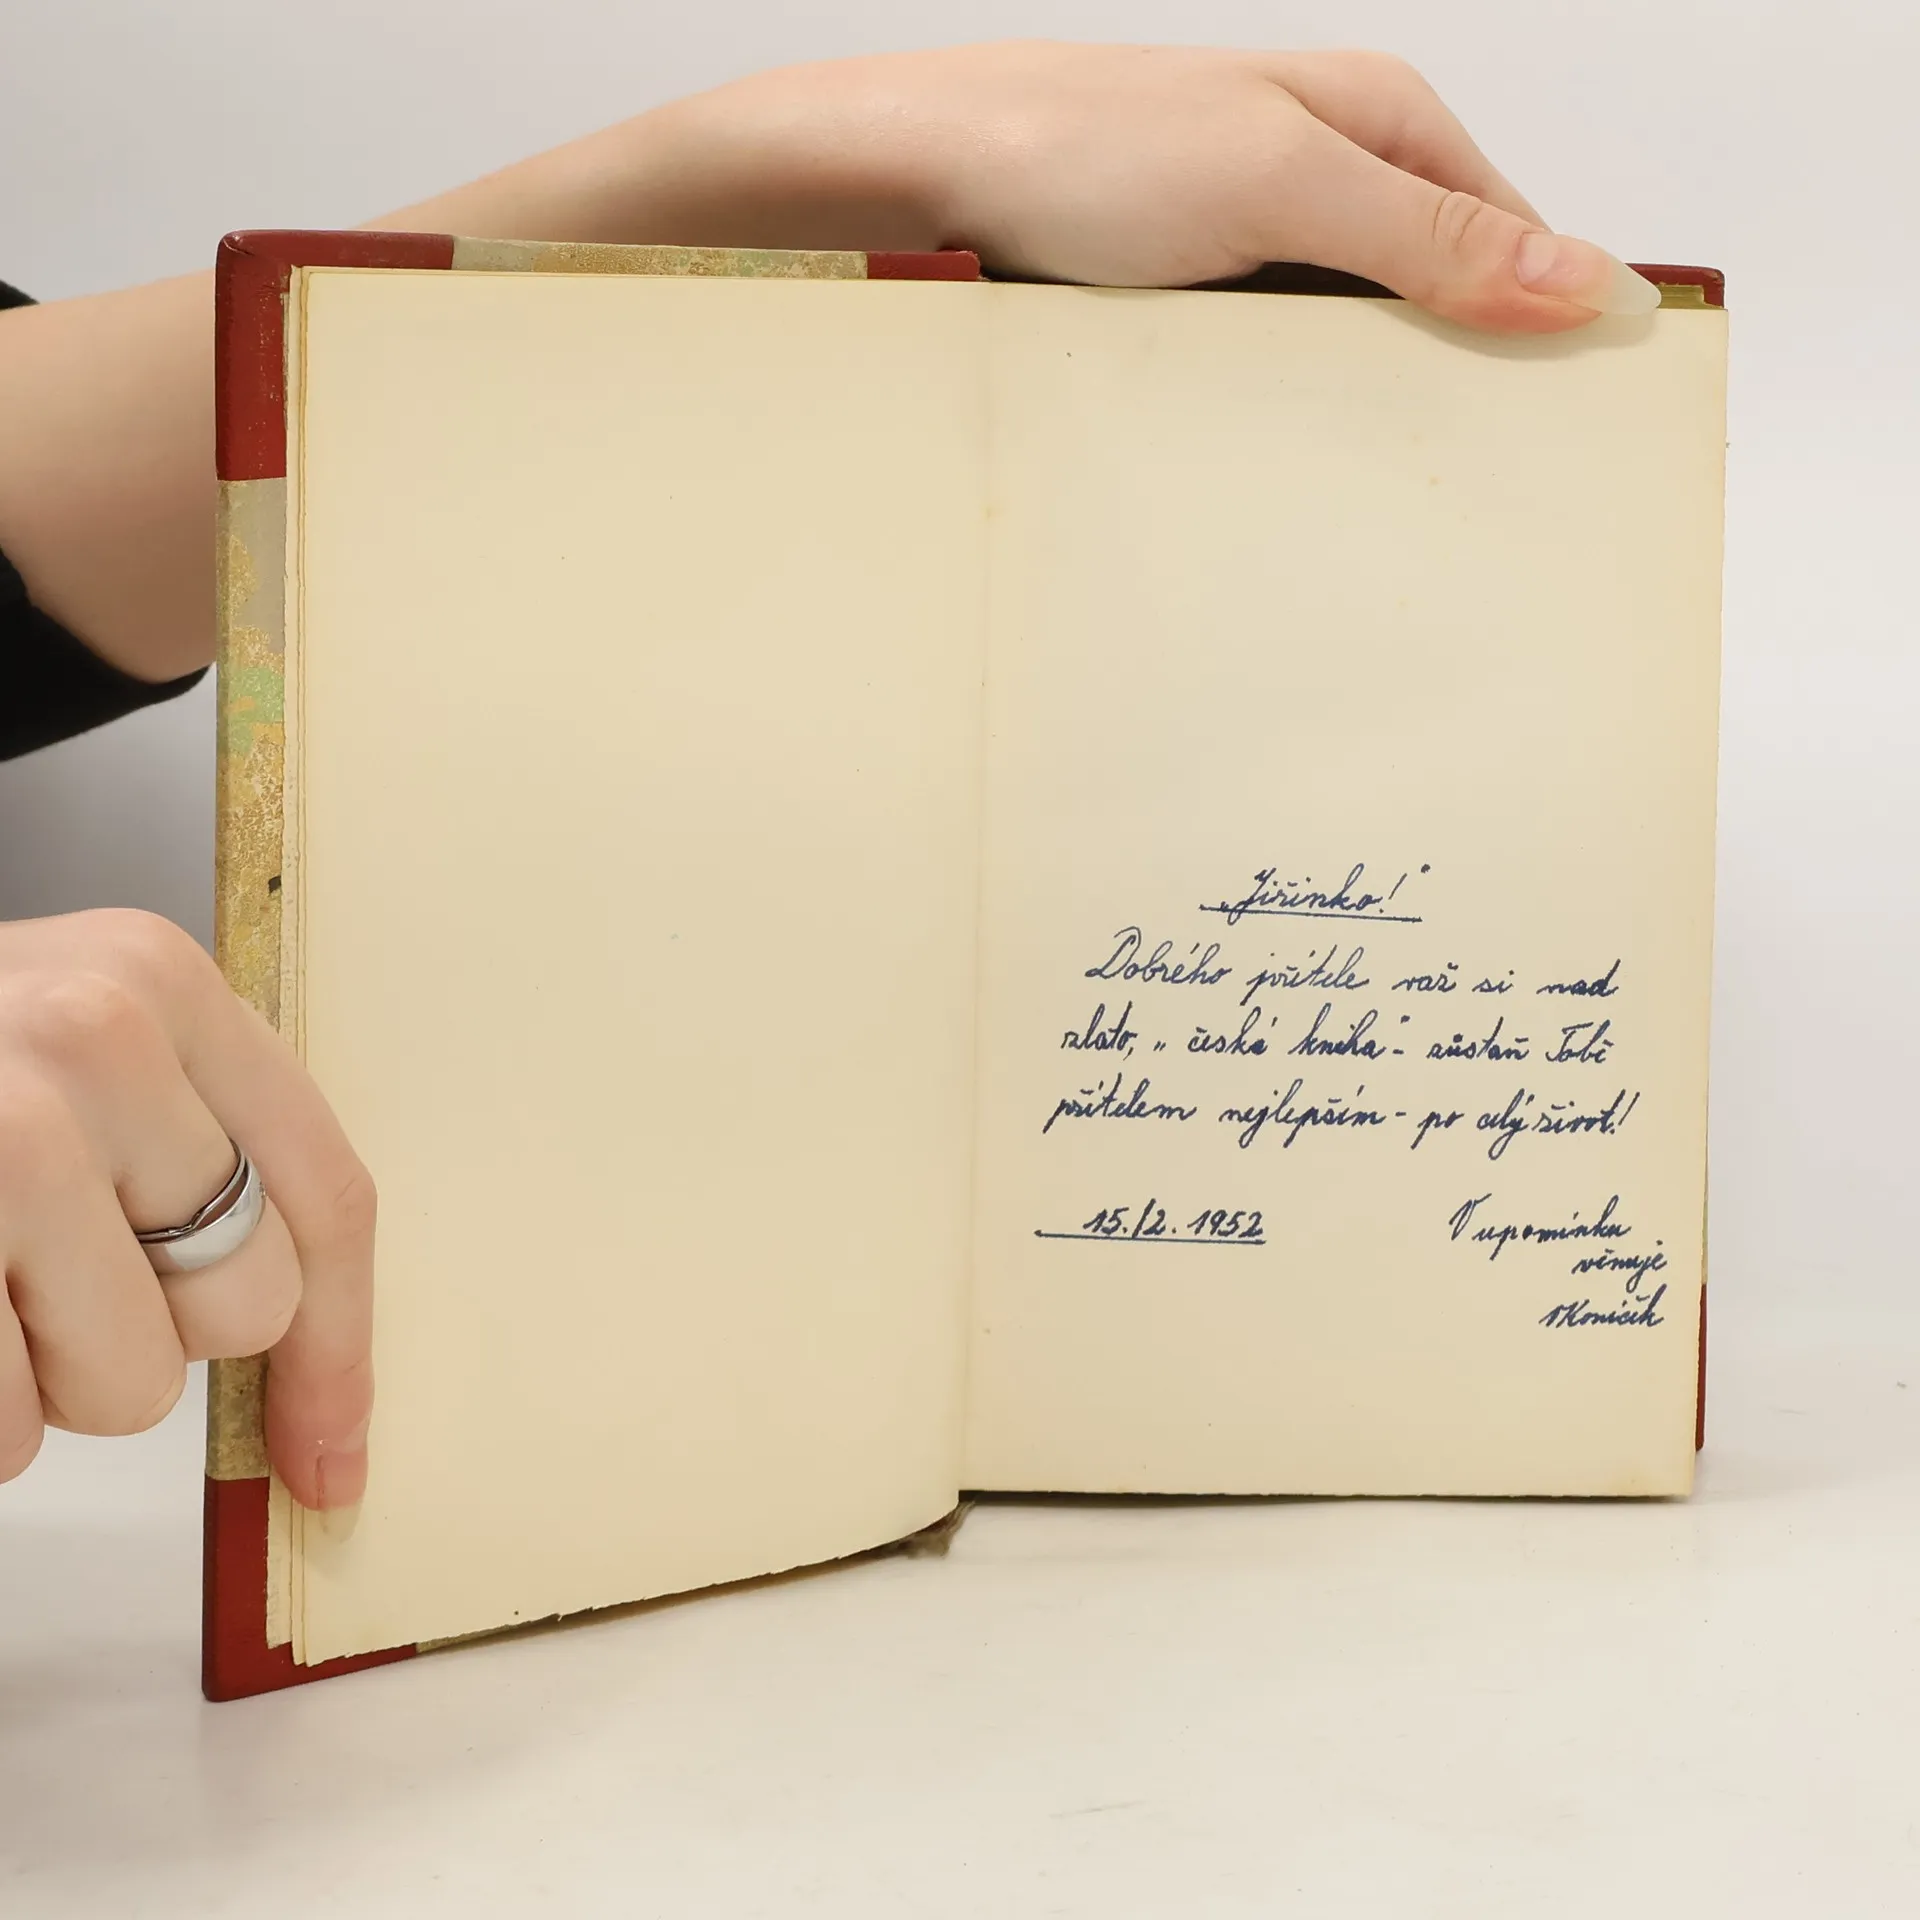 „Jiřinko!"
Dobrého přítele važ si nad
zlato, „česká kniha"- zůstaň Tobě
přítelem nejlepším - po celý život!
15./2. 1952
V upomínku
věnuje
Koníček